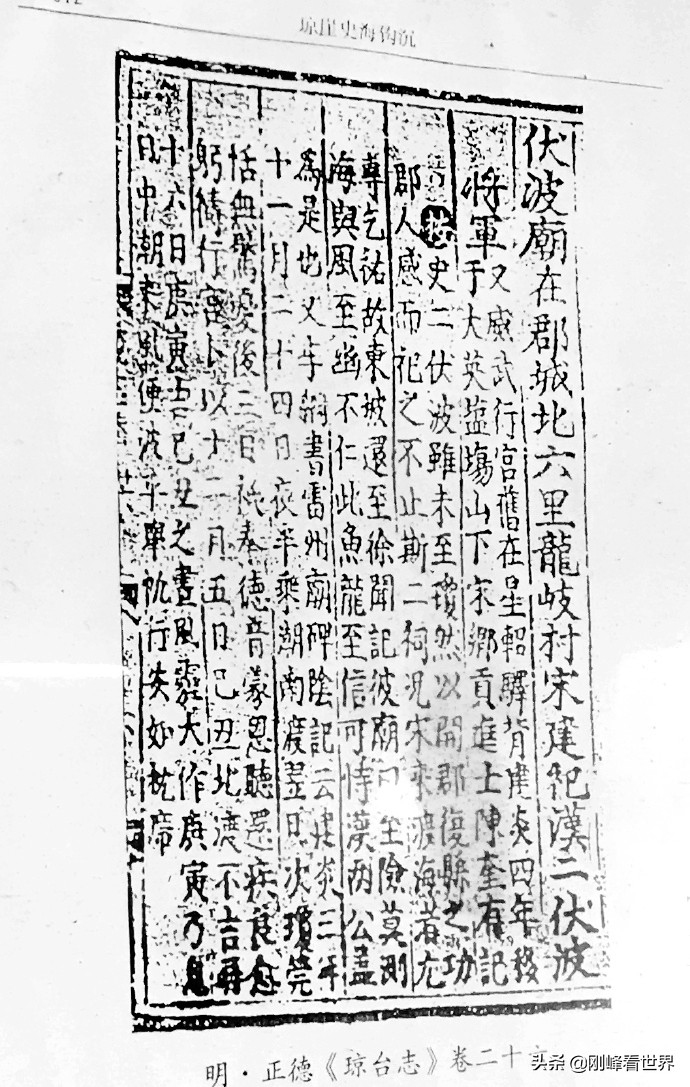 琼崖史海钩沉
伏波廟在郡城北六里龍岐村宋建祀漢二伏波
將軍
又威武行宮舊在星軺驛背建炎四年移
于大英塩塲山下宋鄉貢進士陳奎有記
史二伏波雖未至瓊然以開郡復縣之功
郡人感而祀之不止斯二祠况宋來渡海者尤
尊乞祐故東坡還至徐聞記彼廟曰至險莫測
海與風至幽不仁此魚龍至信可恃漢兩公蓋
為是也又李綱書雷州廟碑陰記云建炎三年
十一月二十四日夜半乘潮南渡翌日次瓊莞
恬無驚憂後三日祗奉德音蒙恩聽還疾良愈
躬禱行宮卜以十二月五日己丑北渡不吉再
十六日庚寅吉己丑之晝風霾大作庚寅乃息
日中朝來風便波平舉帆行安如枕席
明·正德《琼台志》卷二十六
头条 @刚峰看世界